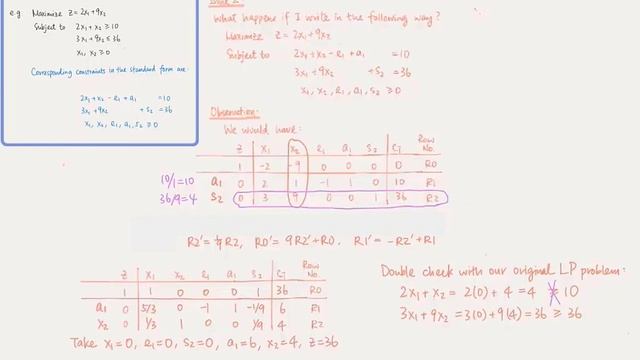 e.g Maximize z = 2x₁ + 9x₂
Subject to 2x₁ + x₂ ≥ 10
3x₁ + 9x₂ ≤ 36
x₁, x₂ ≥ 0
Corresponding constraints in the standard form are:
2x₁ + x₂ - e₁ + a₁ = 10
3x₁ + 9x₂ + s₂ = 36
x₁, x₂, e₁, a₁, s₂ ≥ 0
What happens if I write in the following way?
Maximize z = 2x₁ + 9x₂
Subject to 2x₁ + x₂ - e₁ + a₁ = 10
3x₁ + 9x₂ + s₂ = 36
x₁, x₂, e₁, a₁, s₂ ≥ 0
Observation:
We would have:
z x₁ x₂ e₁ a₁ s₂ Row No.
1 -2 -9 0 0 0 0 R0
10/1=10 a₁ 0 2 1 -1 1 0 10 R1
36/9=4 s₂ 0 3 9 0 0 1 36 R2
R2' = 1/9 R2, R0' = 9R2' + R0, R1' = -R2' + R1
z x₁ x₂ e₁ a₁ s₂ Row No.
1 1 0 0 0 1 36 R0
a₁ 0 5/3 0 -1 1 -1/9 6 R1
x₂ 0 1/3 1 0 0 1/9 4 R2
Take x₁=0, e₁=0, s₂=0, a₁=6, x₂=4, z=36
Double check with our original LP problem:
2x₁ + x₂ = 2(0) + 4 = 4 ≥ 10
3x₁ + 9x₂ = 3(0) + 9(4) = 36 ≥ 36